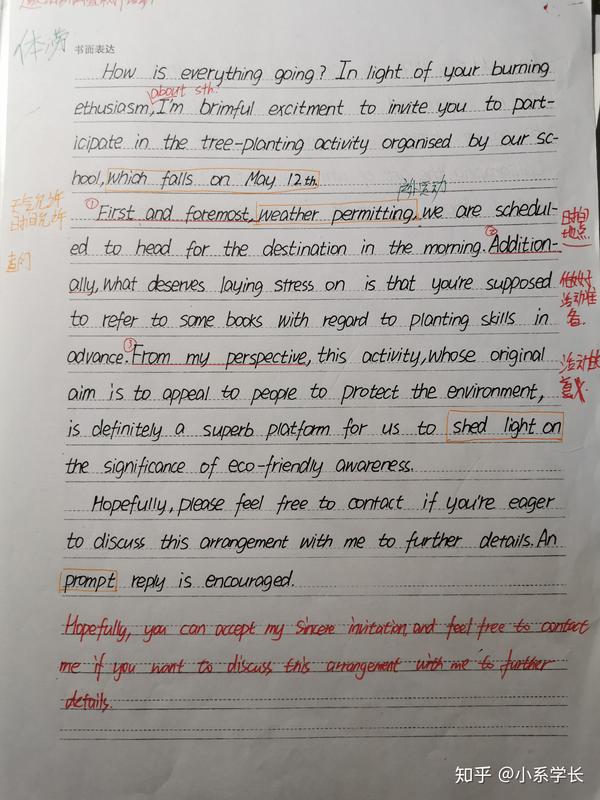 体涝 书面表达
How is everything going? In light of your burning
about sth.
ethusiasm, I'm brimful excitment to invite you to part-
icipate in the tree-planting activity organised by our sc-
hool, which falls on May 12th.
① First and foremost, weather permitting, we are schedul-
日时间
地点
ed to head for the destination in the morning. ② Addition-
ally, what deserves laying stress on is that you're supposed
to refer to some books with regard to planting skills in
advance. ③ From my perspective, this activity, whose original
活动的
意义
aim is to appeal to people to protect the environment,
is definitely a superb platform for us to shed light on
the significance of eco-friendly awareness.
Hopefully, please feel free to contact if you're eager
to discuss this arrangement with me to further details. An
prompt reply is encouraged.
Hopefully, you can accept my sincere invitation, and feel free to contact
me if you want to discuss this arrangement with me to further
details.
知乎 @小系学长